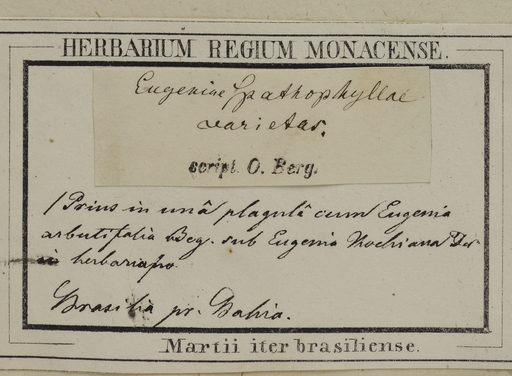 HERBARIUM REGIUM MONACENSE.
Eugeniae spathophyllae
varietas.
script. O. Berg.
Prius in unâ plagulâ cum Eugenia
arbutifolia Bg. sub Eugenia
herbario
Brasilia pr. Bahia.
Martii iter brasiliense.